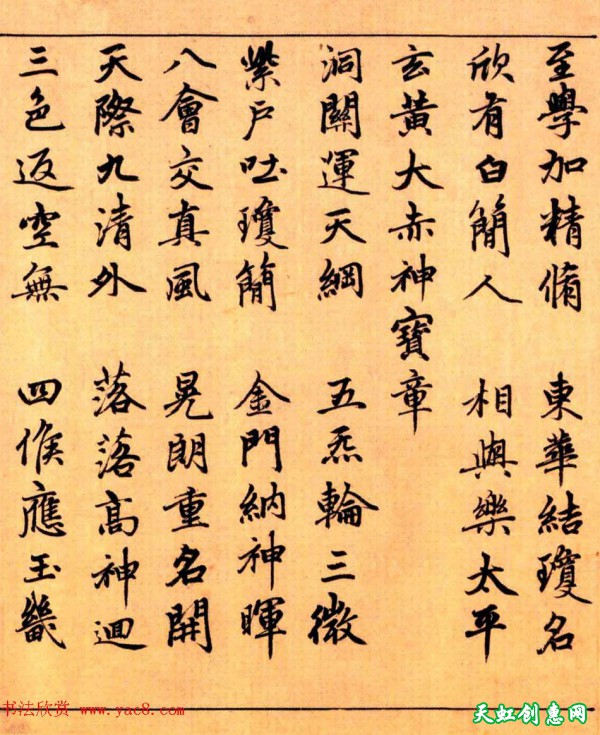 至學加精脩 東華結瓊名
欣有白簡人 相與樂太平
玄黃大赤神寶章
洞關運天綱 五炁輪三微
紫戶吐瓊簡 金門納神暉
八會交真風 晃朗重名開
天際九清外 落落高神迴
三色返空無 四候應玉畿
书法欣赏 www.yac8.com
天虹创惠网